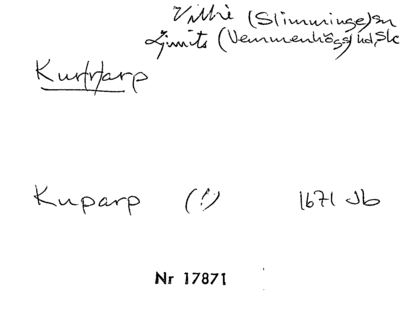 Villie (Slimminge) sn
Ljunits (Vemmenhögs) hd, Sk
Kur(r)arp
Kuparp (!) 1671 Jb
Nr 17871